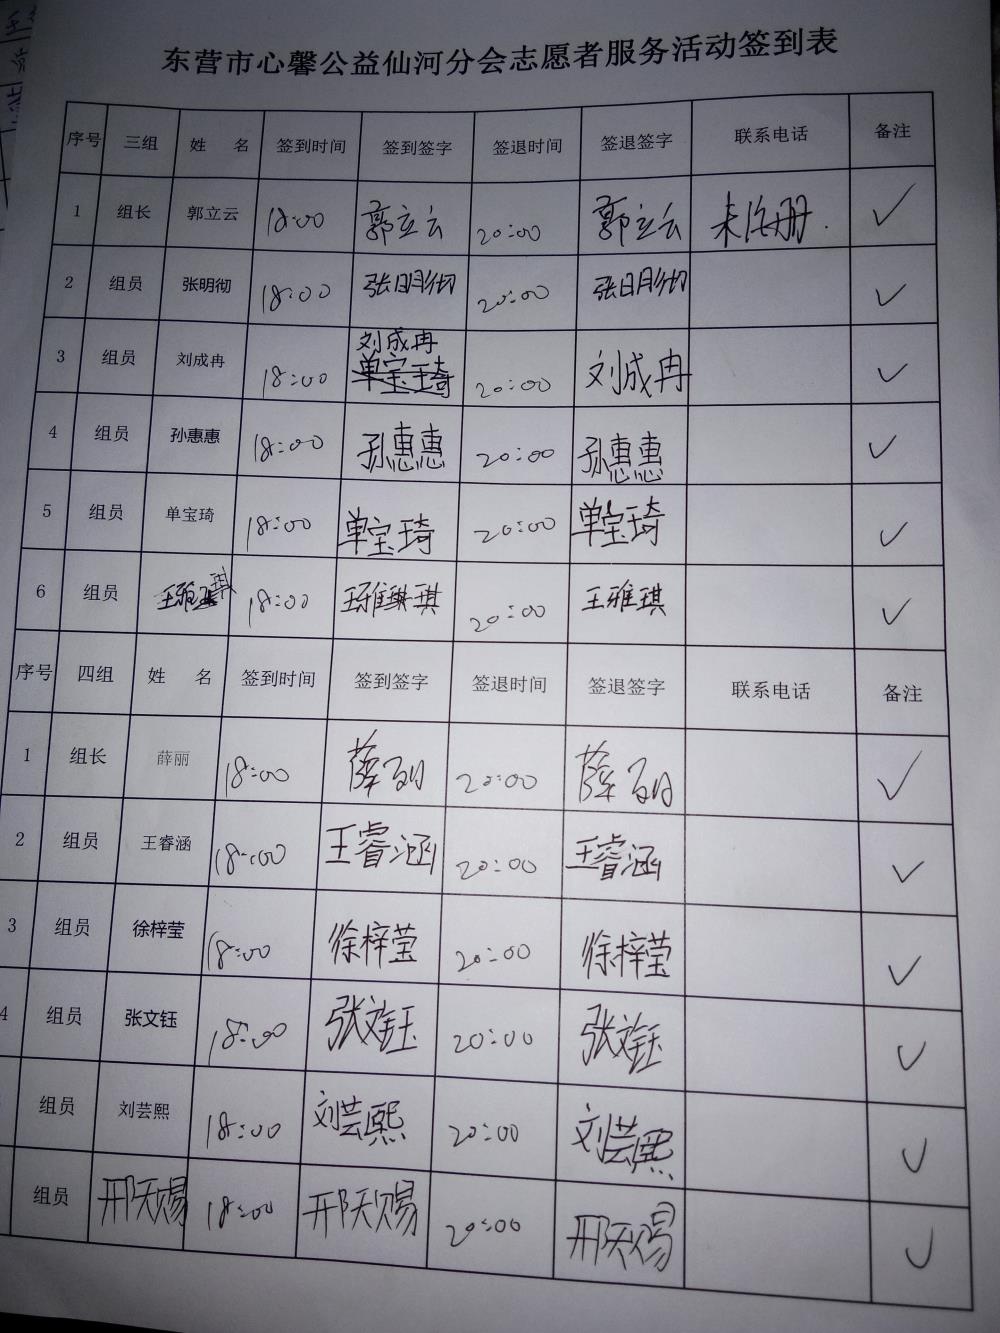 东营市心馨公益仙河分会志愿者服务活动签到表
序号 三组 姓 名 签到时间 签到签字 签退时间 签退签字 联系电话 备注
1 组长 郭立云 18:00 郭立云 20:00 郭立云 未注册. ✓
2 组员 张明彻 18:00 张明彻 20:00 张明彻 ✓
刘成冉
3 组员 刘成冉 18:00 单宝琦 20:00 刘成冉 ✓
4 组员 孙惠惠 18:00 孙惠惠 20:00 孙惠惠 ✓
5 组员 单宝琦 18:00 单宝琦 20:00 单宝琦 ✓
6 组员 王雅琪 18:00 王雅琪 20:00 王雅琪 ✓
序号 四组 姓 名 签到时间 签到签字 签退时间 签退签字 联系电话 备注
1 组长 薛丽 18:00 薛丽 20:00 薛丽 ✓
2 组员 王睿涵 18:00 王睿涵 20:00 王睿涵 ✓
3 组员 徐梓莹 18:00 徐梓莹 20:00 徐梓莹 ✓
4 组员 张文钰 18:00 张文钰 20:00 张文钰 ✓
组员 刘芸熙 18:00 刘芸熙 20:00 刘芸熙 ✓
组员 邢天赐 18:00 邢天赐 20:00 邢天赐 ✓